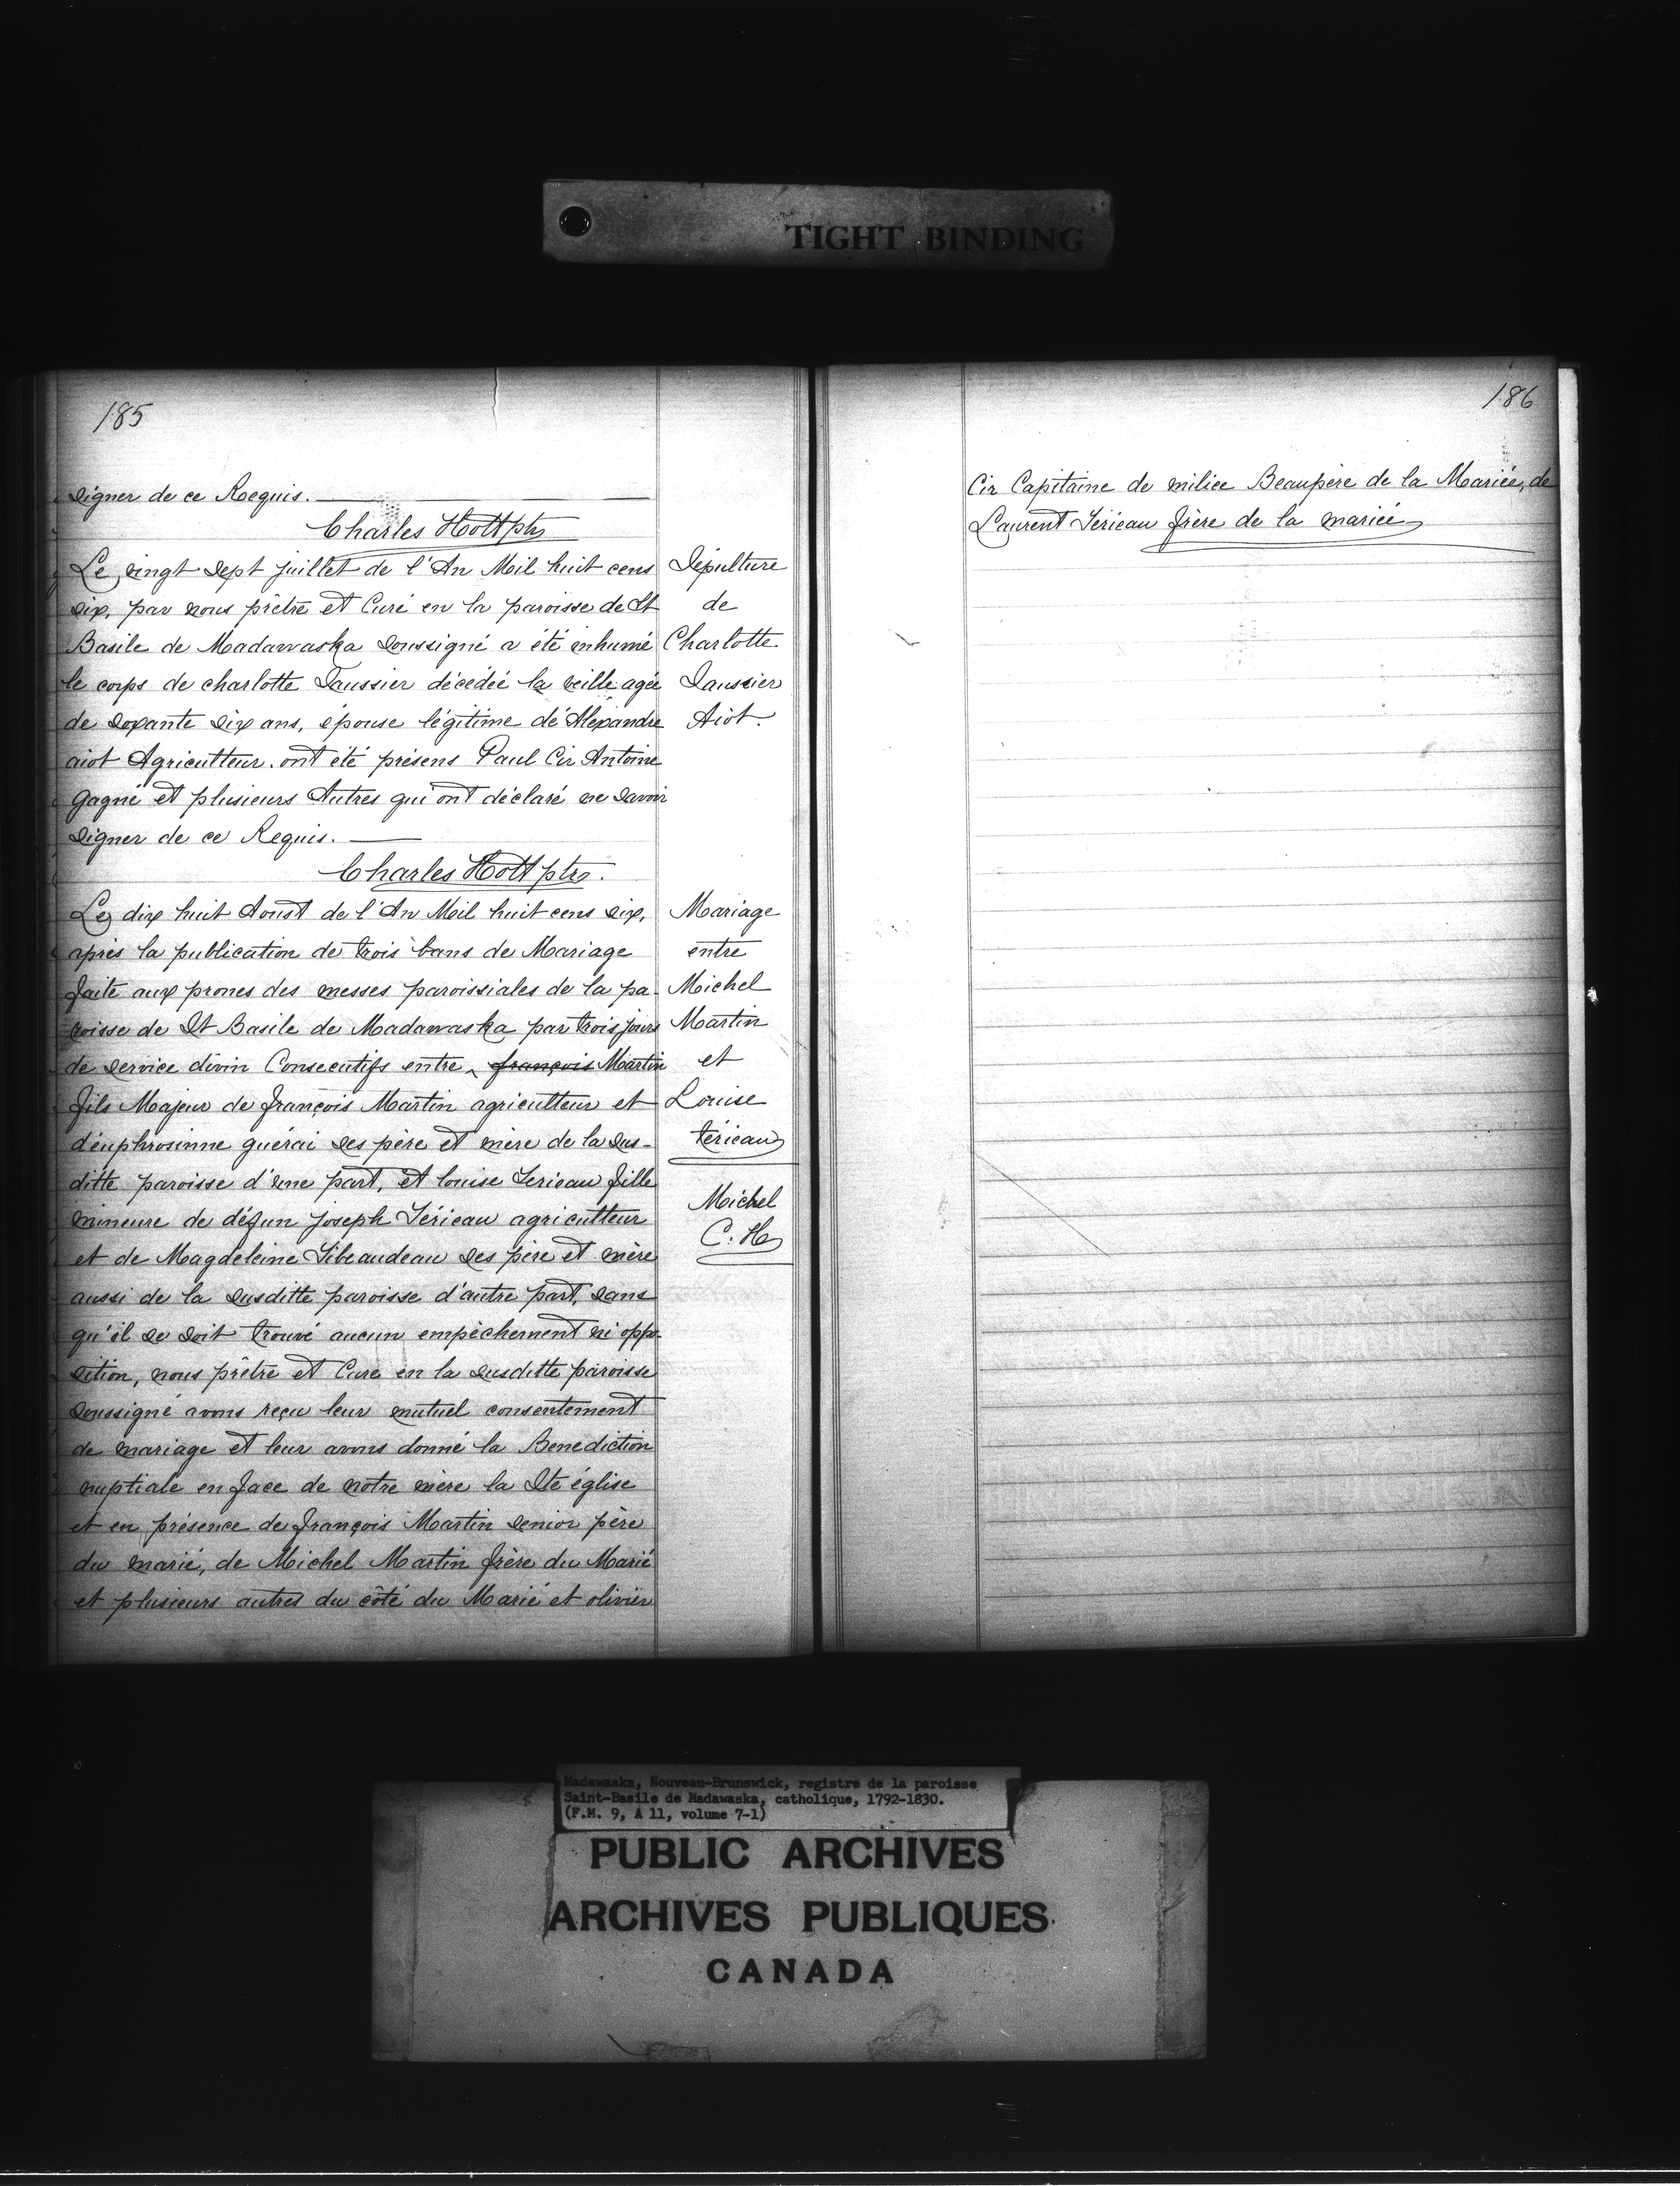 TIGHT BINDING
185
signer de ce Requis.
Charles Hott ptre
Le vingt sept juillet de l'An Mil huit cens
six, par nous prêtre et Curé en la paroisse de St
Basile de Madawaska soussigné a été inhumé
le corps de charlotte Saussier décédéé la veille agée
de soxante six ans, épouse légitime dé Alexandre
aiot Agriculteur. ont été présens Paul Cir Antoine
gagné et plusieurs Autres qui ont déclaré ne savoir
signer de ce Requis.
Charles Hott ptre.
Le dix huit Aoust de l'An Mil huit cens six,
après la publication de trois bans de Mariage
faite aux prones des messes paroissiales de la pa-
roisse de St Basile de Madawaska par trois jours
de service divin Consecutifs entre ‸ françois Martin
fils Majeur de françois Martin agriculteur et
d'euphrosinne guérai ses père et mère de la sus-
ditte paroisse d'une part, et louise Terieau fille
mineure de défun Joseph Térieau agriculteur
et de Magdeleine Tibeaudeau ses père et mère
aussi de la susditte paroisse d'autre part, sans
qu'il se soit trouvé aucun empêchement ni oppo-
sition, nous prêtre et Curé en la susditte paroisse
soussigné avons reçu leur mutuel consentement
de mariage et leur avons donné la Benediction
nuptiale en face de notre mère la Ste église
et en présence de françois Martin senior père
du marié, de Michel Martin frère du Marié
et plusieurs autres du côté du Marié et olivier
Sépulture
de
Charlotte
Saussier
Aiot.
Mariage
entre
Michel
Martin
et
Louise
térieau
Michel
C. H
186
Cir Capitaine de milice Beaupère de la Mariée, de
Laurent Térieau frère de la mariée
Madawaska, Nouveau-Brunswick, registre de la paroisse
Saint-Basile de Madawaska, catholique, 1792-1830.
(F.M. 9, A 11, volume 7-1)
PUBLIC ARCHIVES
ARCHIVES PUBLIQUES
CANADA